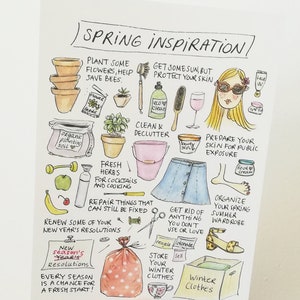 SPRING INSPIRATION
PLANT SOME
FLOWERS, HELP
SAVE BEES.
GET SOME SUN BUT
PROTECT YOUR SKIN
CLEAN &
DECLUTTER
PREPARE YOUR
SKIN FOR PUBLIC
EXPOSURE
ORGANIC
FRESH
HERBS
FOR COCKTAILS
AND COOKING
REPAIR THINGS THAT
CAN STILL BE FIXED
ORGANIZE
YOUR SPRING
SUMMER
WARDROBE
GET RID OF
ANYTHING
YOU DON'T
USE OR LOVE
RENEW SOME OF YOUR
NEW YEAR'S RESOLUTIONS
NEW season's
Year's
Resolutions
STORE
YOUR
WINTER
CLOTHES
Winter
Clothes
EVERY SEASON
IS A CHANCE FOR
A FRESH START!